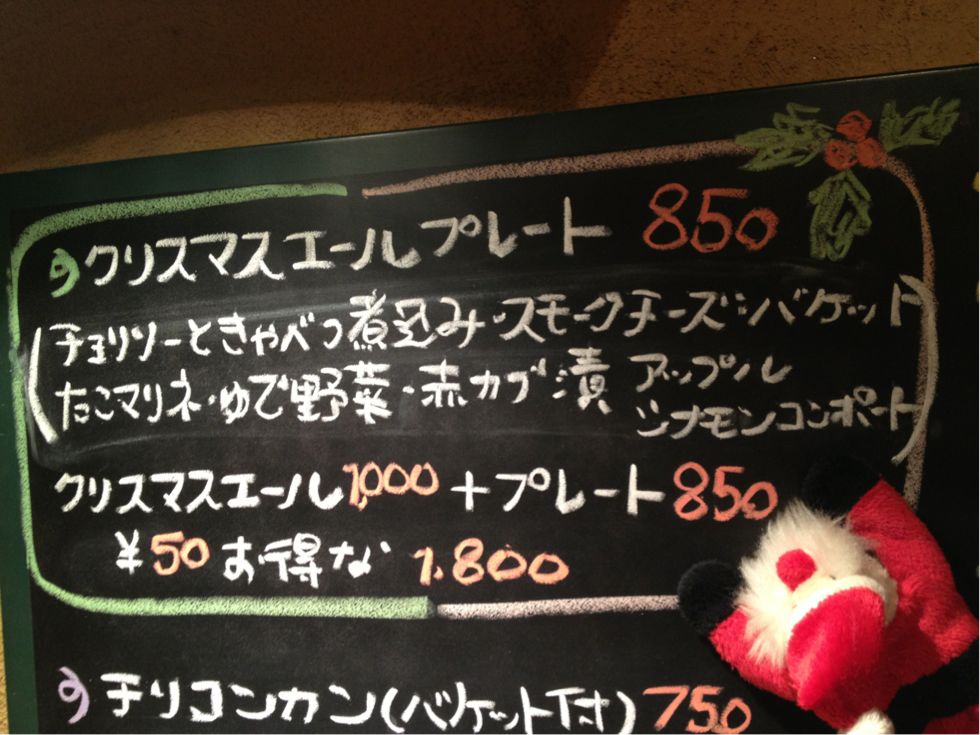 クリスマスエールプレート 850
(チョリソーときゃべつ煮込み・スモークチーズ・バケット
たこマリネ・ゆで野菜・赤カブ漬 アップル
シナモンコンポート)
クリスマスエール1,000 +プレート850
¥50お得な 1.800
チリコンカン(バケット付) 750